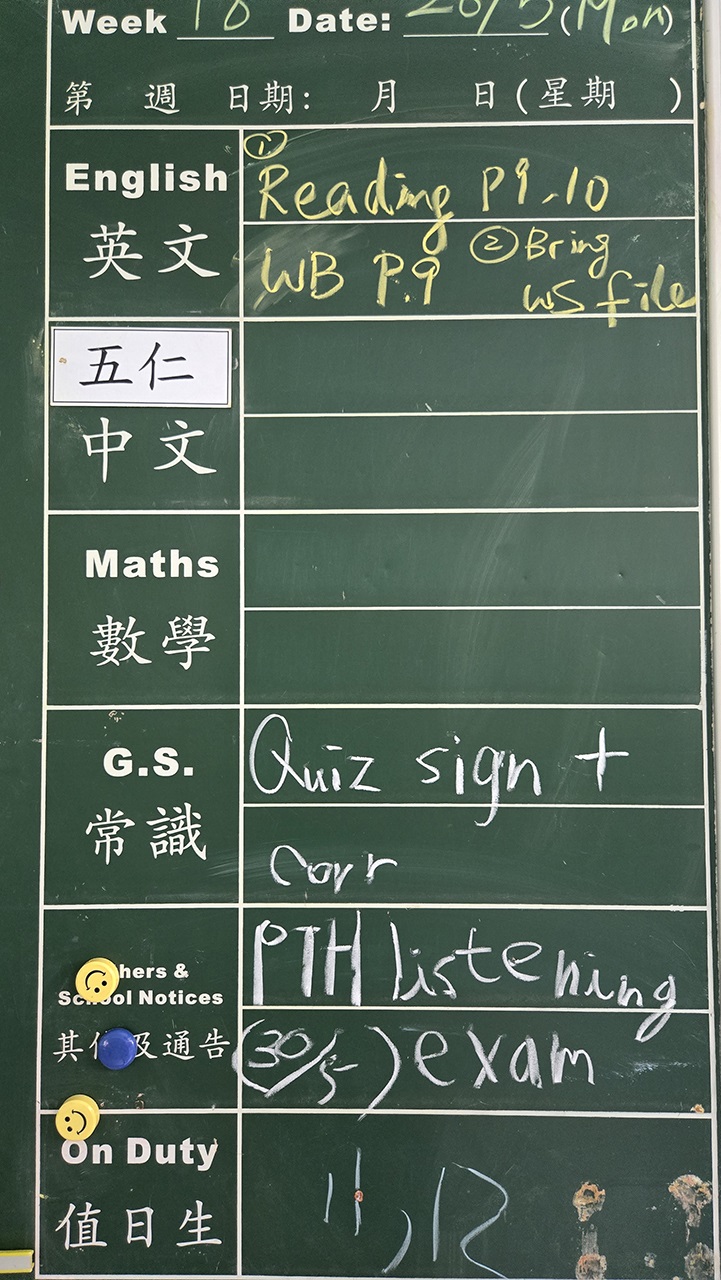 Week 18 Date: 26/5 (Mon)
第 週 日期: 月 日(星期 )
English
英文
① Reading P9-10
WB P.9 ② Bring
WS file
五仁
中文
Maths
數學
G.S.
常識
Quiz sign +
corr
hers &
School Notices
其他及通告
PTH listening
(30/5) exam
On Duty
值日生
11, 12